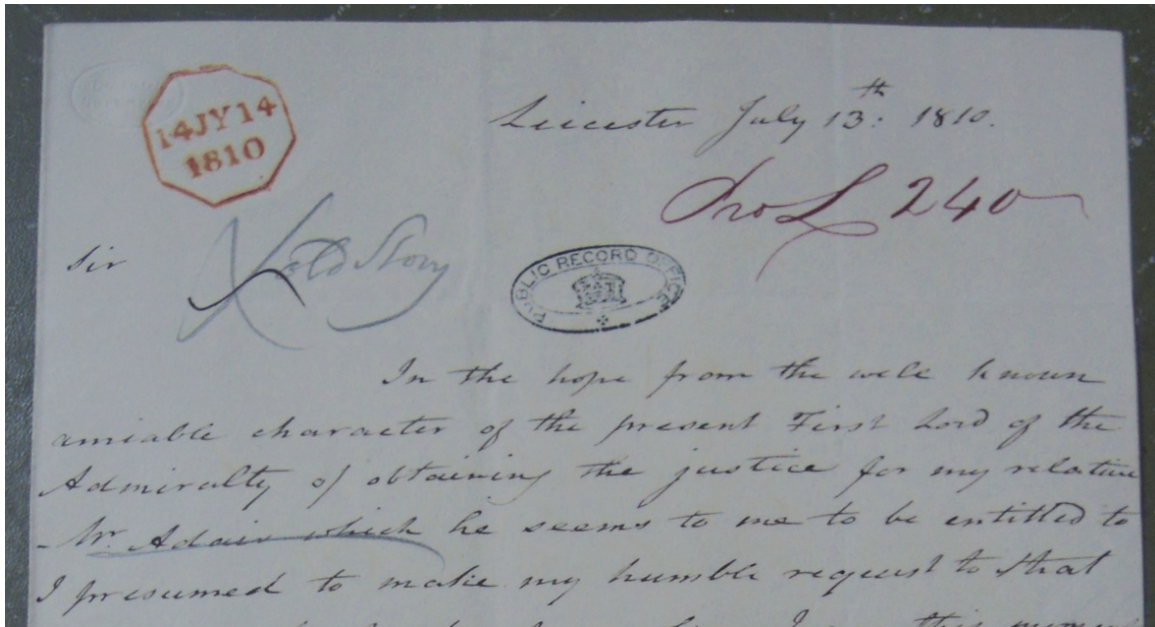 14JY14
1810
Leicester July 13th: 1810.
Pro L 240
Sir
old Story
PUBLIC RECORD OFFICE
In the hope from the well known
amiable character of the present First Lord of the
Admiralty of obtaining the justice for my relative
Mr. Adair which he seems to me to be entitled to
I presumed to make my humble request to that
this moment